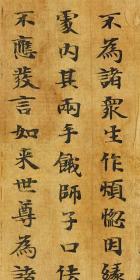 不為諸衆生作煩惚因緣
処内其兩手餓師子口佳
不應發言如来世尊為諸